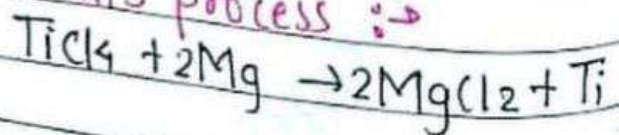 process :→
TiCl4 + 2Mg → 2MgCl2 + Ti